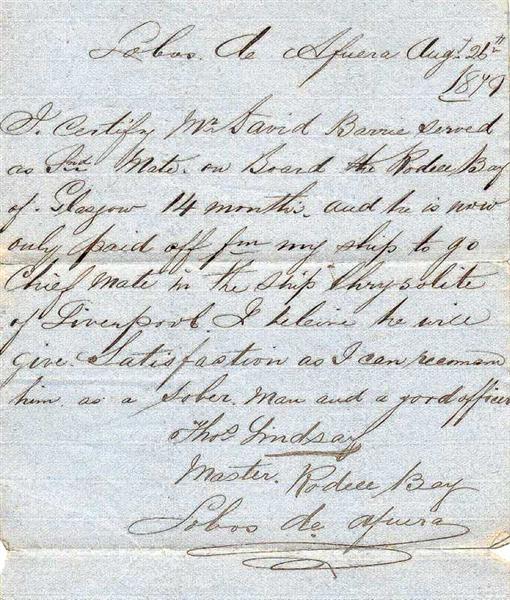 Lobos. de Afuera Augt. 26th
1879
I. Certify Mr David Barrie served
as 2nd Mate. on Board the Rodell Bay
of. Glasgow 14 months. and he is now
only paid off fm my ship to go
Chief Mate in the ship Chrysolite
of Liverpool. I beleive he will
give. Satisfaction as I can recomm
him. as a sober. Man and a good officer
Thos Lindsay
Master. Rodell Bay
Lobos de afuera